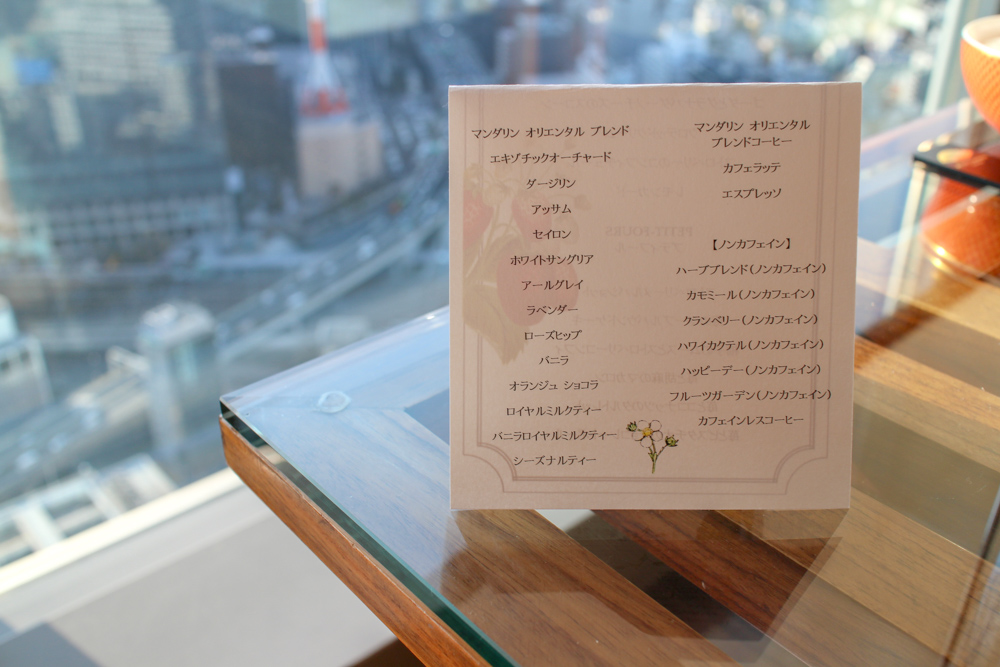 マンダリン オリエンタル ブレンド
エキゾチックオーチャード
ダージリン
アッサム
セイロン
ホワイトサングリア
アールグレイ
ラベンダー
ローズヒップ
バニラ
オランジュ ショコラ
ロイヤルミルクティー
バニラロイヤルミルクティー
シーズナルティー
マンダリン オリエンタル
ブレンドコーヒー
カフェラッテ
エスプレッソ
【ノンカフェイン】
ハーブブレンド(ノンカフェイン)
カモミール(ノンカフェイン)
クランベリー(ノンカフェイン)
ハワイカクテル(ノンカフェイン)
ハッピーデー(ノンカフェイン)
フルーツガーデン(ノンカフェイン)
カフェインレスコーヒー